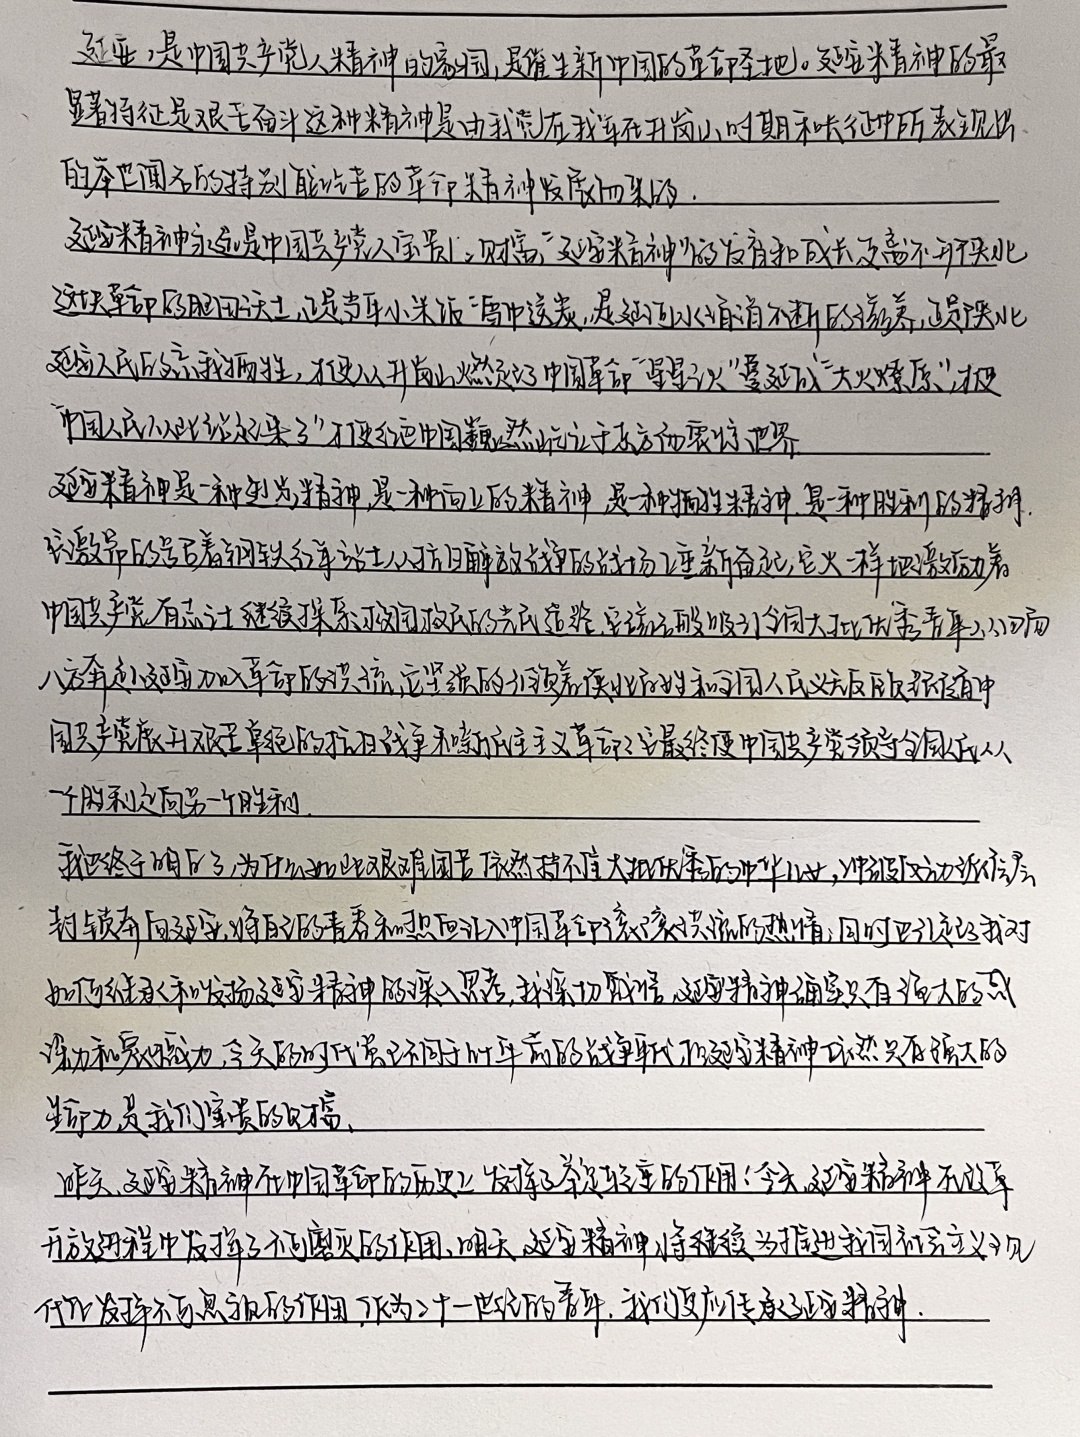 延安,是中国共产党人精神的家园,是催生新中国的革命圣地。延安精神的最
显著特征是艰苦奋斗这种精神是由我党在我军在井岗山时期和长征中所表现出
的举世闻名的特别能吃苦的革命精神发展而来的.
延安精神永远是中国共产党人宝贵的财富,"延安精神"的发育和成长更离不开陕北
这块革命的肥田沃土,正是当年小米饭 窑中这炭,是延河水涓涓不断的滋养,正是陕北
延安人民的忘我牺牲,才使从井岗山燃起的中国革命"星星之火"蔓延成"大火燎原",才使
"中国人民从此站起来了"才使红色中国巍然屹立于东方而震惊世界
延安精神是一种创造精神,是一种向上的精神 是一种牺牲精神.是一种胜利的精神.
它激昂的号召着钢铁红军战士从抗日解放战争的战场上重新奋起,它火一样地激励着
中国共产党有志之士继续探索救国救民的光民道路 它磁石般吸引全国大批优秀青年从四面
八方奔赴延安加入革命的洪流,它坚强的引领着陕北百姓和全国人民义无反顾跟随中
国共产党展开艰苦卓绝的抗日战争和新民主主义革命 它最终使中国共产党领导全国人民从
一个胜利走向另一个胜利.
我也终于明白了,为什么如此艰难困苦依然挡不住大批优秀的中华儿女,冲破反动派层层
封锁奔向延安,将自己的青春和热血汇入中国革命滚滚洪流的热情;同时也引起了我对
如何继承和发扬延安精神的深入思考,我深切感悟,延安精神确实具有强大的感
染力和凝聚力,今天的时代虽已不同于叶年前的战争年代,但延安精神依然具有强大的
生命力,是我们宝贵的财富、
昨天、延安精神在中国革命的历史上发挥了举足轻重的作用;今天,延安精神在改革
开放进程中发挥了不可磨灭的作用、明天,延安精神将继续为推进我国社会主义现
代化发挥不可忽视的作用,作为二十一世纪的青年.我们更应传承延安精神.